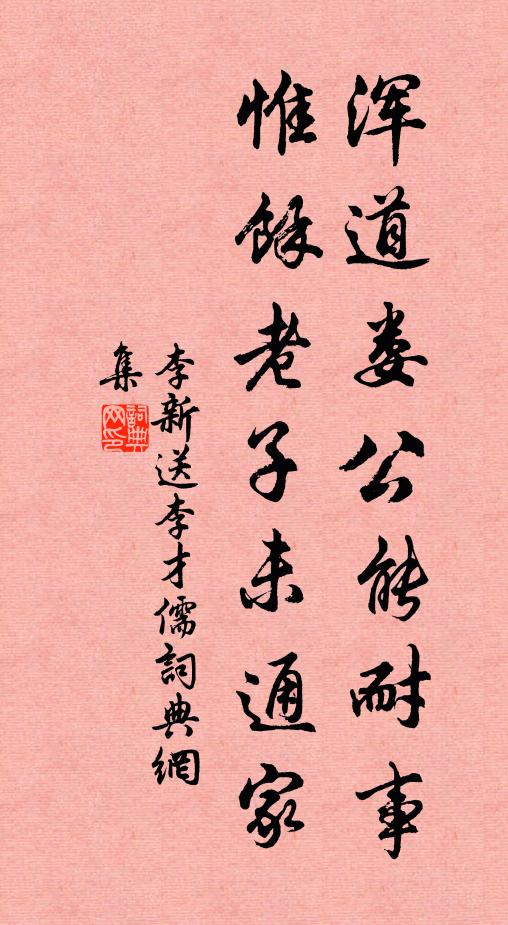 浑道娄公能耐事
惟餘老子未通家
李新送李才儒詞典網
集
詞典
网印